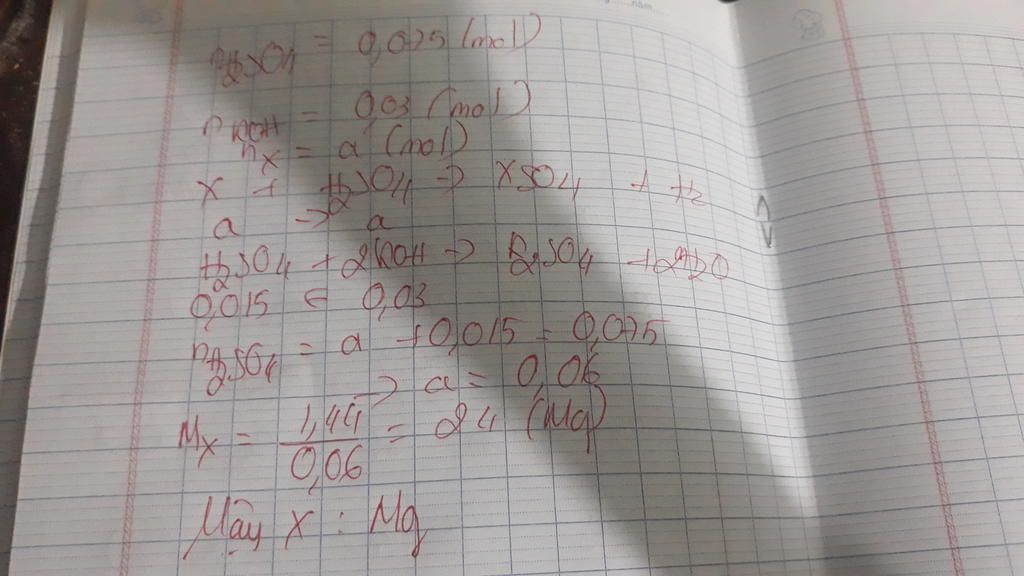 nH2SO4 = 0,075 (mol)
nKOH = 0,03 (mol)
nX = a (mol)
X + H2SO4 → XSO4 + H2
a → a
H2SO4 + 2KOH → K2SO4 + 2H2O
0,015 ← 0,03
nH2SO4 = a + 0,015 = 0,075
→ a = 0,06
MX = 1,44 / 0,06 = 24 (Mg)
Vậy X : Mg